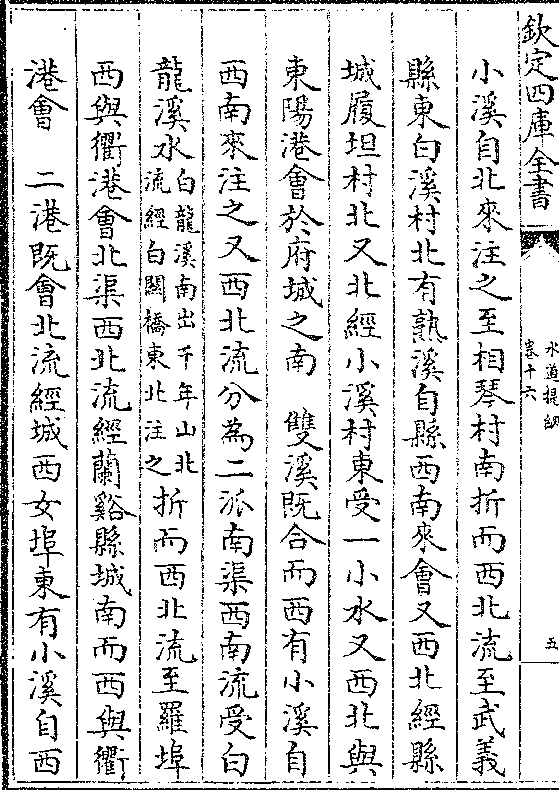 欽定四庫全書
水道提綱
卷十六
五
小溪自北來注之至相琴村南折而西北流至武義
縣東白溪村北有熟溪自縣西南來會又西北經縣
城履坦村北又北經小溪村東受一小水又西北與
東陽港會於府城之南　雙溪既合而西有小溪自
西南來注之又西北流分為二派南渠西南流受白
龍溪水白龍溪南出千年山北流經白關橋東北注之折而西北流至羅埠
西與衢港會北渠西北流經蘭谿縣城南而西與衢
港會　二港既會北流經城西女埠東有小溪自西